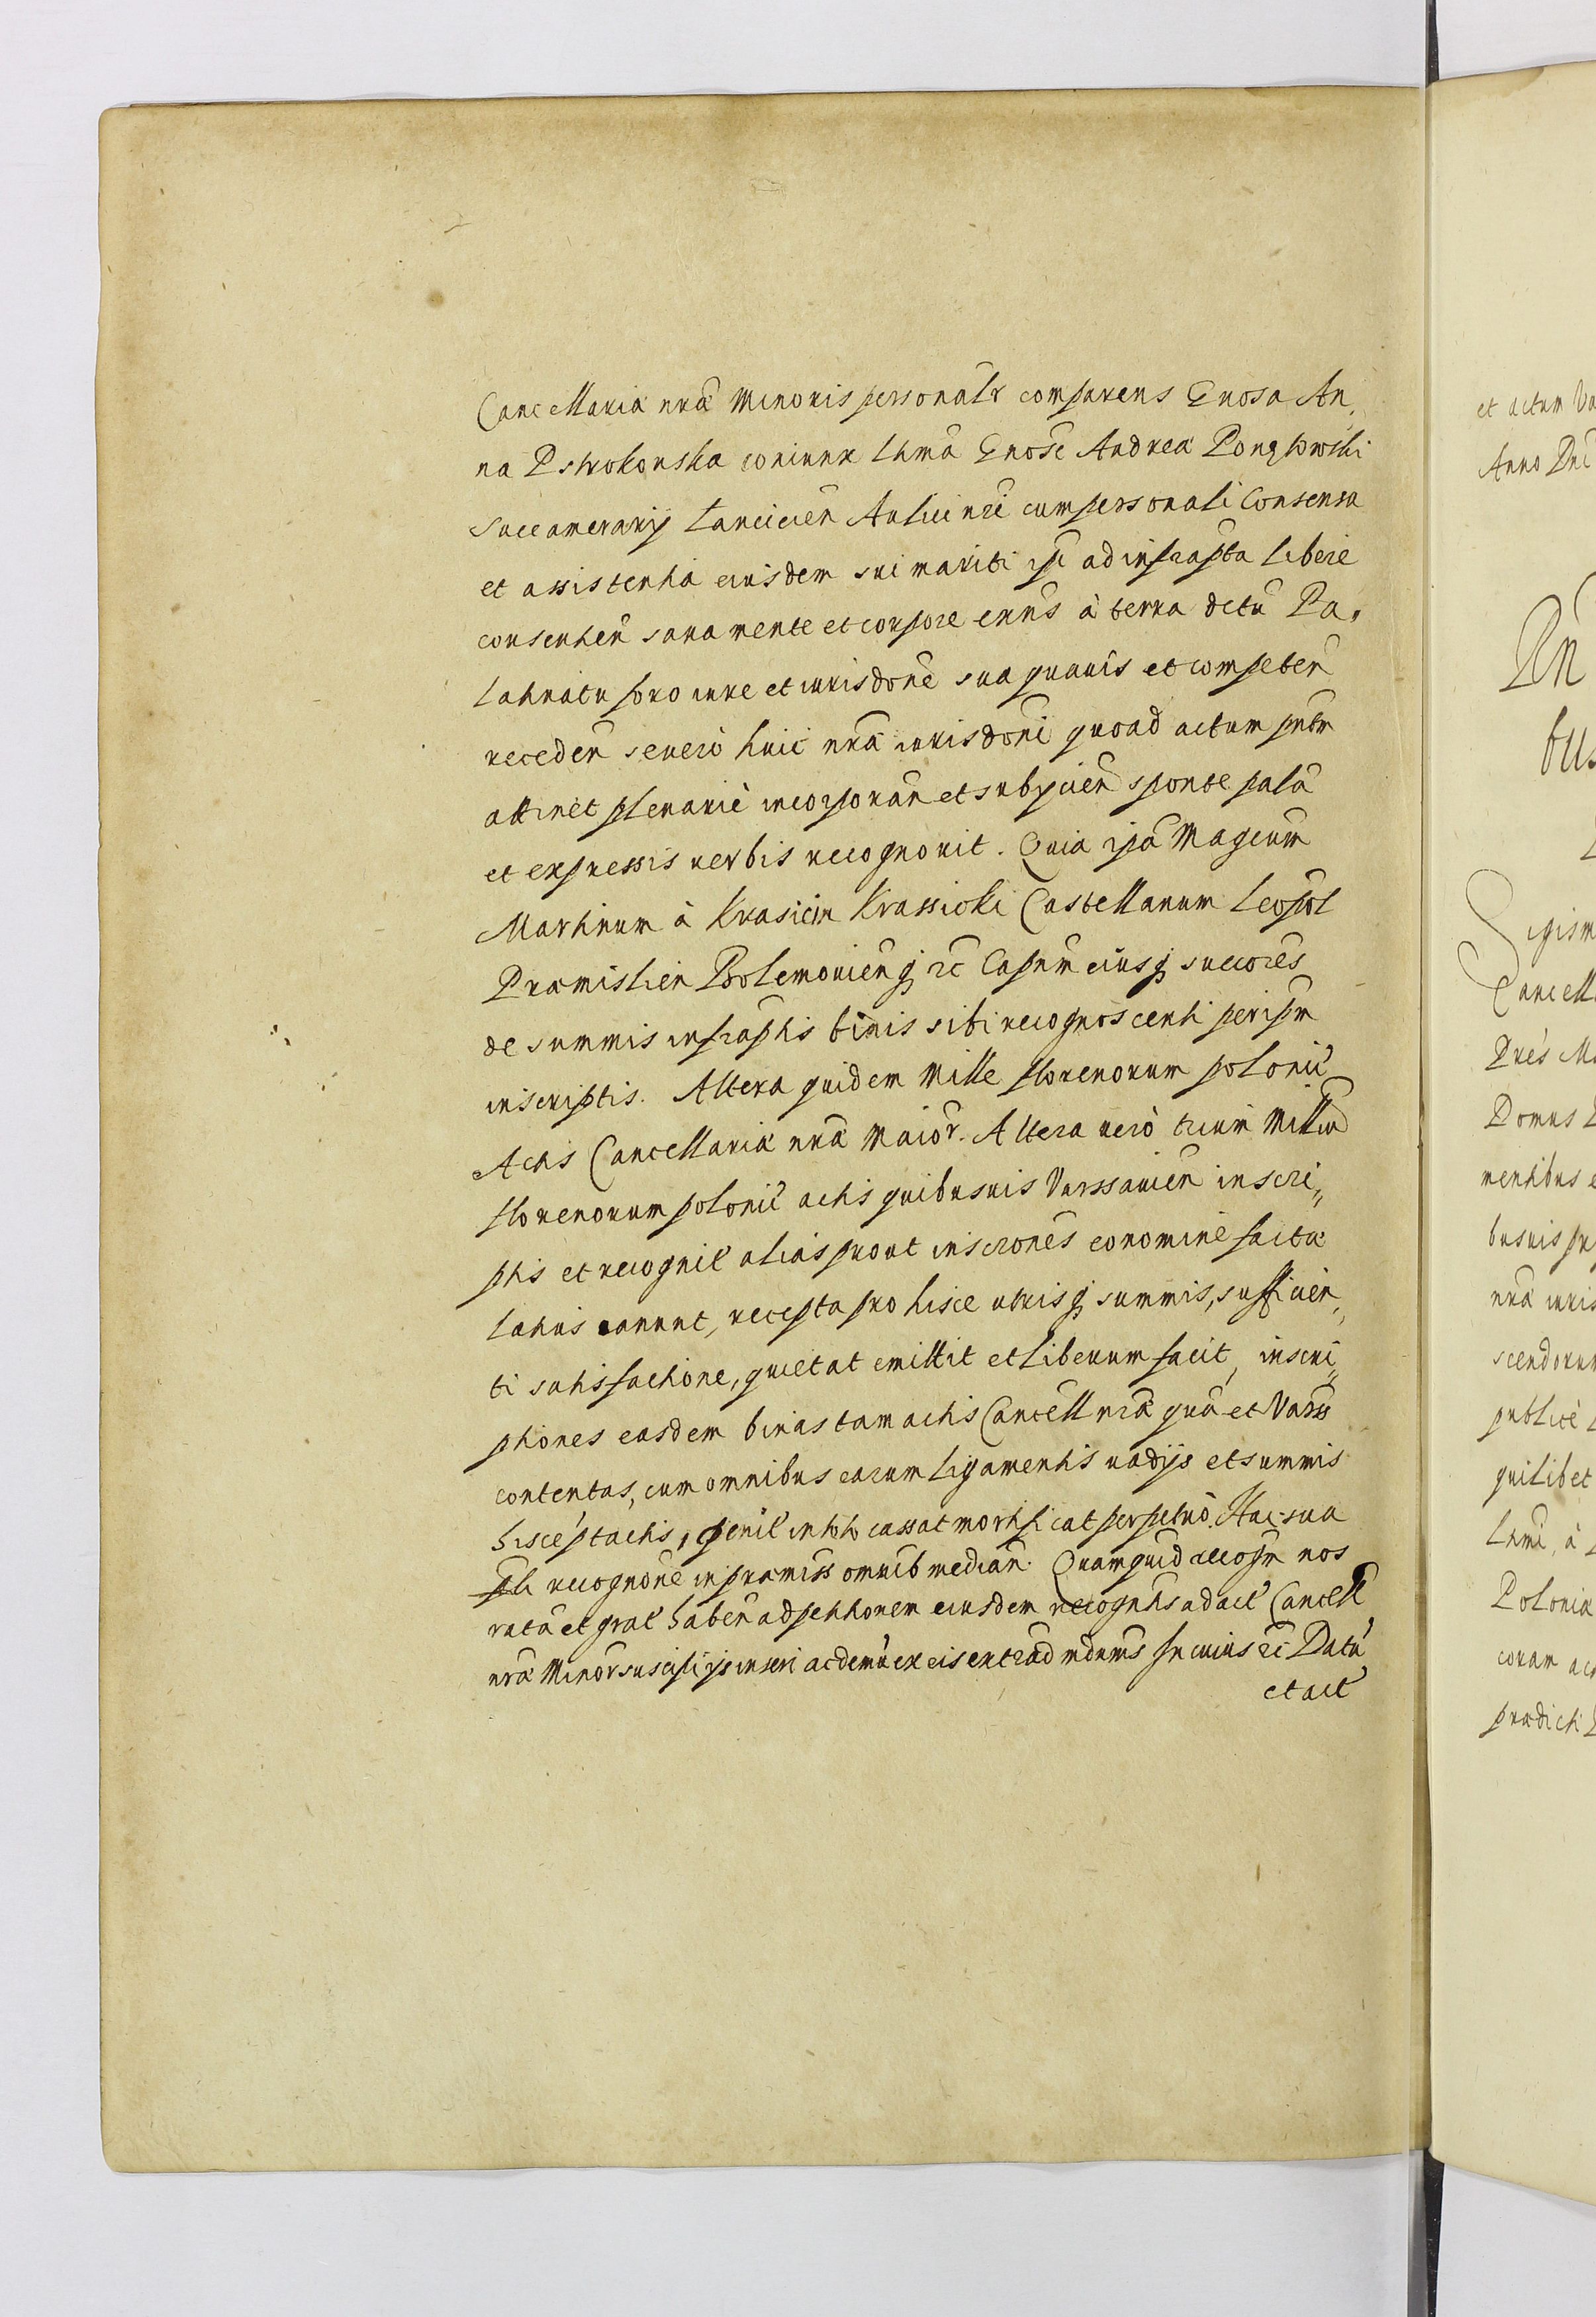 Cancellariæ nræ Minoris personalr comparens Gnosa An,
na Pstrokonska coniunx lhma Gnose Andreæ Pongłowski
succamerarij Lancicien Aulici nri cum personali Consensu
et assistentia eiusdem sui mariti ipi ad infrapta libere
consentien sana mente et corpore exns à terra dctu Pa,
latinatu foro iure et iurisdone sua quauis et competen
receden se vero huic nræ iurisdoni quoad actum pntm
attinet plenariè incorporan et subÿcien sponte palã
et expressis verbis recognouit. Quia ipa Magcum
Martinum à Krasicin Krassicki Castellanum Leopol
Præmislien Bolemouien q3 rc Capnm eiusq3 succores
de summis infraptis binis sibi recognoscenti per ipm
inscriptis. Altera quidem Mille florenorum polonic
Actis Cancellariæ nræ Maior. Altera verò trium Millium
florenorum polonic actis quibusuis Varssauien inscri„
ptis et recognit alias prout inscrones eo nomine factæ
latius canunt, recepta pro hisce utrisq3 summis, sufficien,
ti satisfactione, quietat emittit et liberum facit, inscri„
ptiones easdem binas tam actis Cancell nræ quã et Varss
contentas, cum omnibus earum ligamentis vadijs et summis
hisce ptactis, penit in toto cassat mortificat perpetuò. Hac sua
pti recognone in præmiss omnib median. Quam quid recogn nos
ratã et grat haben ad petitionem eiusdem recognitis ad act Cancell
nræ Minor suscipi ijs inseri ac demù ex eis extrad mdnms In cuius rei Datũ
et act

et actum Va
Anno Dni
Pn
bus
Sigism
Cancell
Pres Ma
Domus
mentibus e
busuis pr
nræ iuris
scendorum
publicè
quilibet
lhmi, à
Poloniæ
coram ac
prædicti